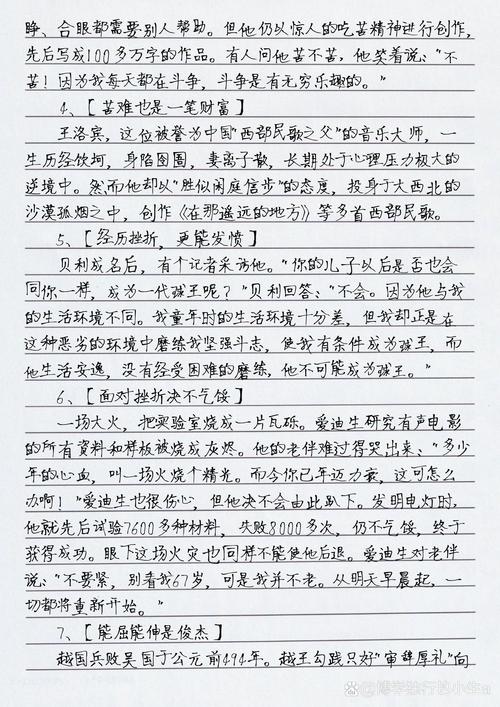 睁、合眼都需要别人帮助。但他仍以惊人的吃苦精神进行创作,
先后写成100多万字的作品。有人问他苦不苦,他笑着说:"不
苦!因为我每天都在斗争,斗争是有无穷乐趣的。"
4、【苦难也是一笔财富】
王洛宾,这位被誉为中国"西部民歌之父"的音乐大师,一
生历经坎坷,身陷囹圄,妻离子散,长期处于心理压力极大的
逆境中。然而他却以"胜似闲庭信步"的态度,投身于大西北的
沙漠孤烟之中,创作《在那遥远的地方》等多首西部民歌。
5、【经历挫折,更能发愤】
贝利成名后,有个记者采访他。"你的儿子以后是否也会
同你一样,成为一代球王呢?"贝利回答:"不会。因为他与我
的生活环境不同。我童年时的生活环境十分差,但我却正是在
这种恶劣的环境中磨练我坚强斗志,使我有条件成为球王,而
他生活安逸,没有经受困难的磨练,他不可能成为球王。"
6、【面对挫折决不气馁】
一场大火,把实验室烧成一片瓦砾。爱迪生研究有声电影
的所有资料和样板被烧成灰烬。他的老伴难过得哭出来:"多少
年的心血,叫一场火烧个精光。而今你已年迈力衰,这可怎么
办啊!"爱迪生也很伤心,但他决不会由此趴下。发明电灯时,
他就先后试验7600多种材料,失败8000多次,仍不气馁,终于
获得成功。眼下这场火灾也同样不能使他后退。爱迪生对老伴
说:"不要紧,别看我67岁,可是我并不老。从明天早晨起,一
切都将重新开始。"
7、【能屈能伸是俊杰】
越国兵败吴国于公元前494年。越王勾践只好"卑辞厚礼"向